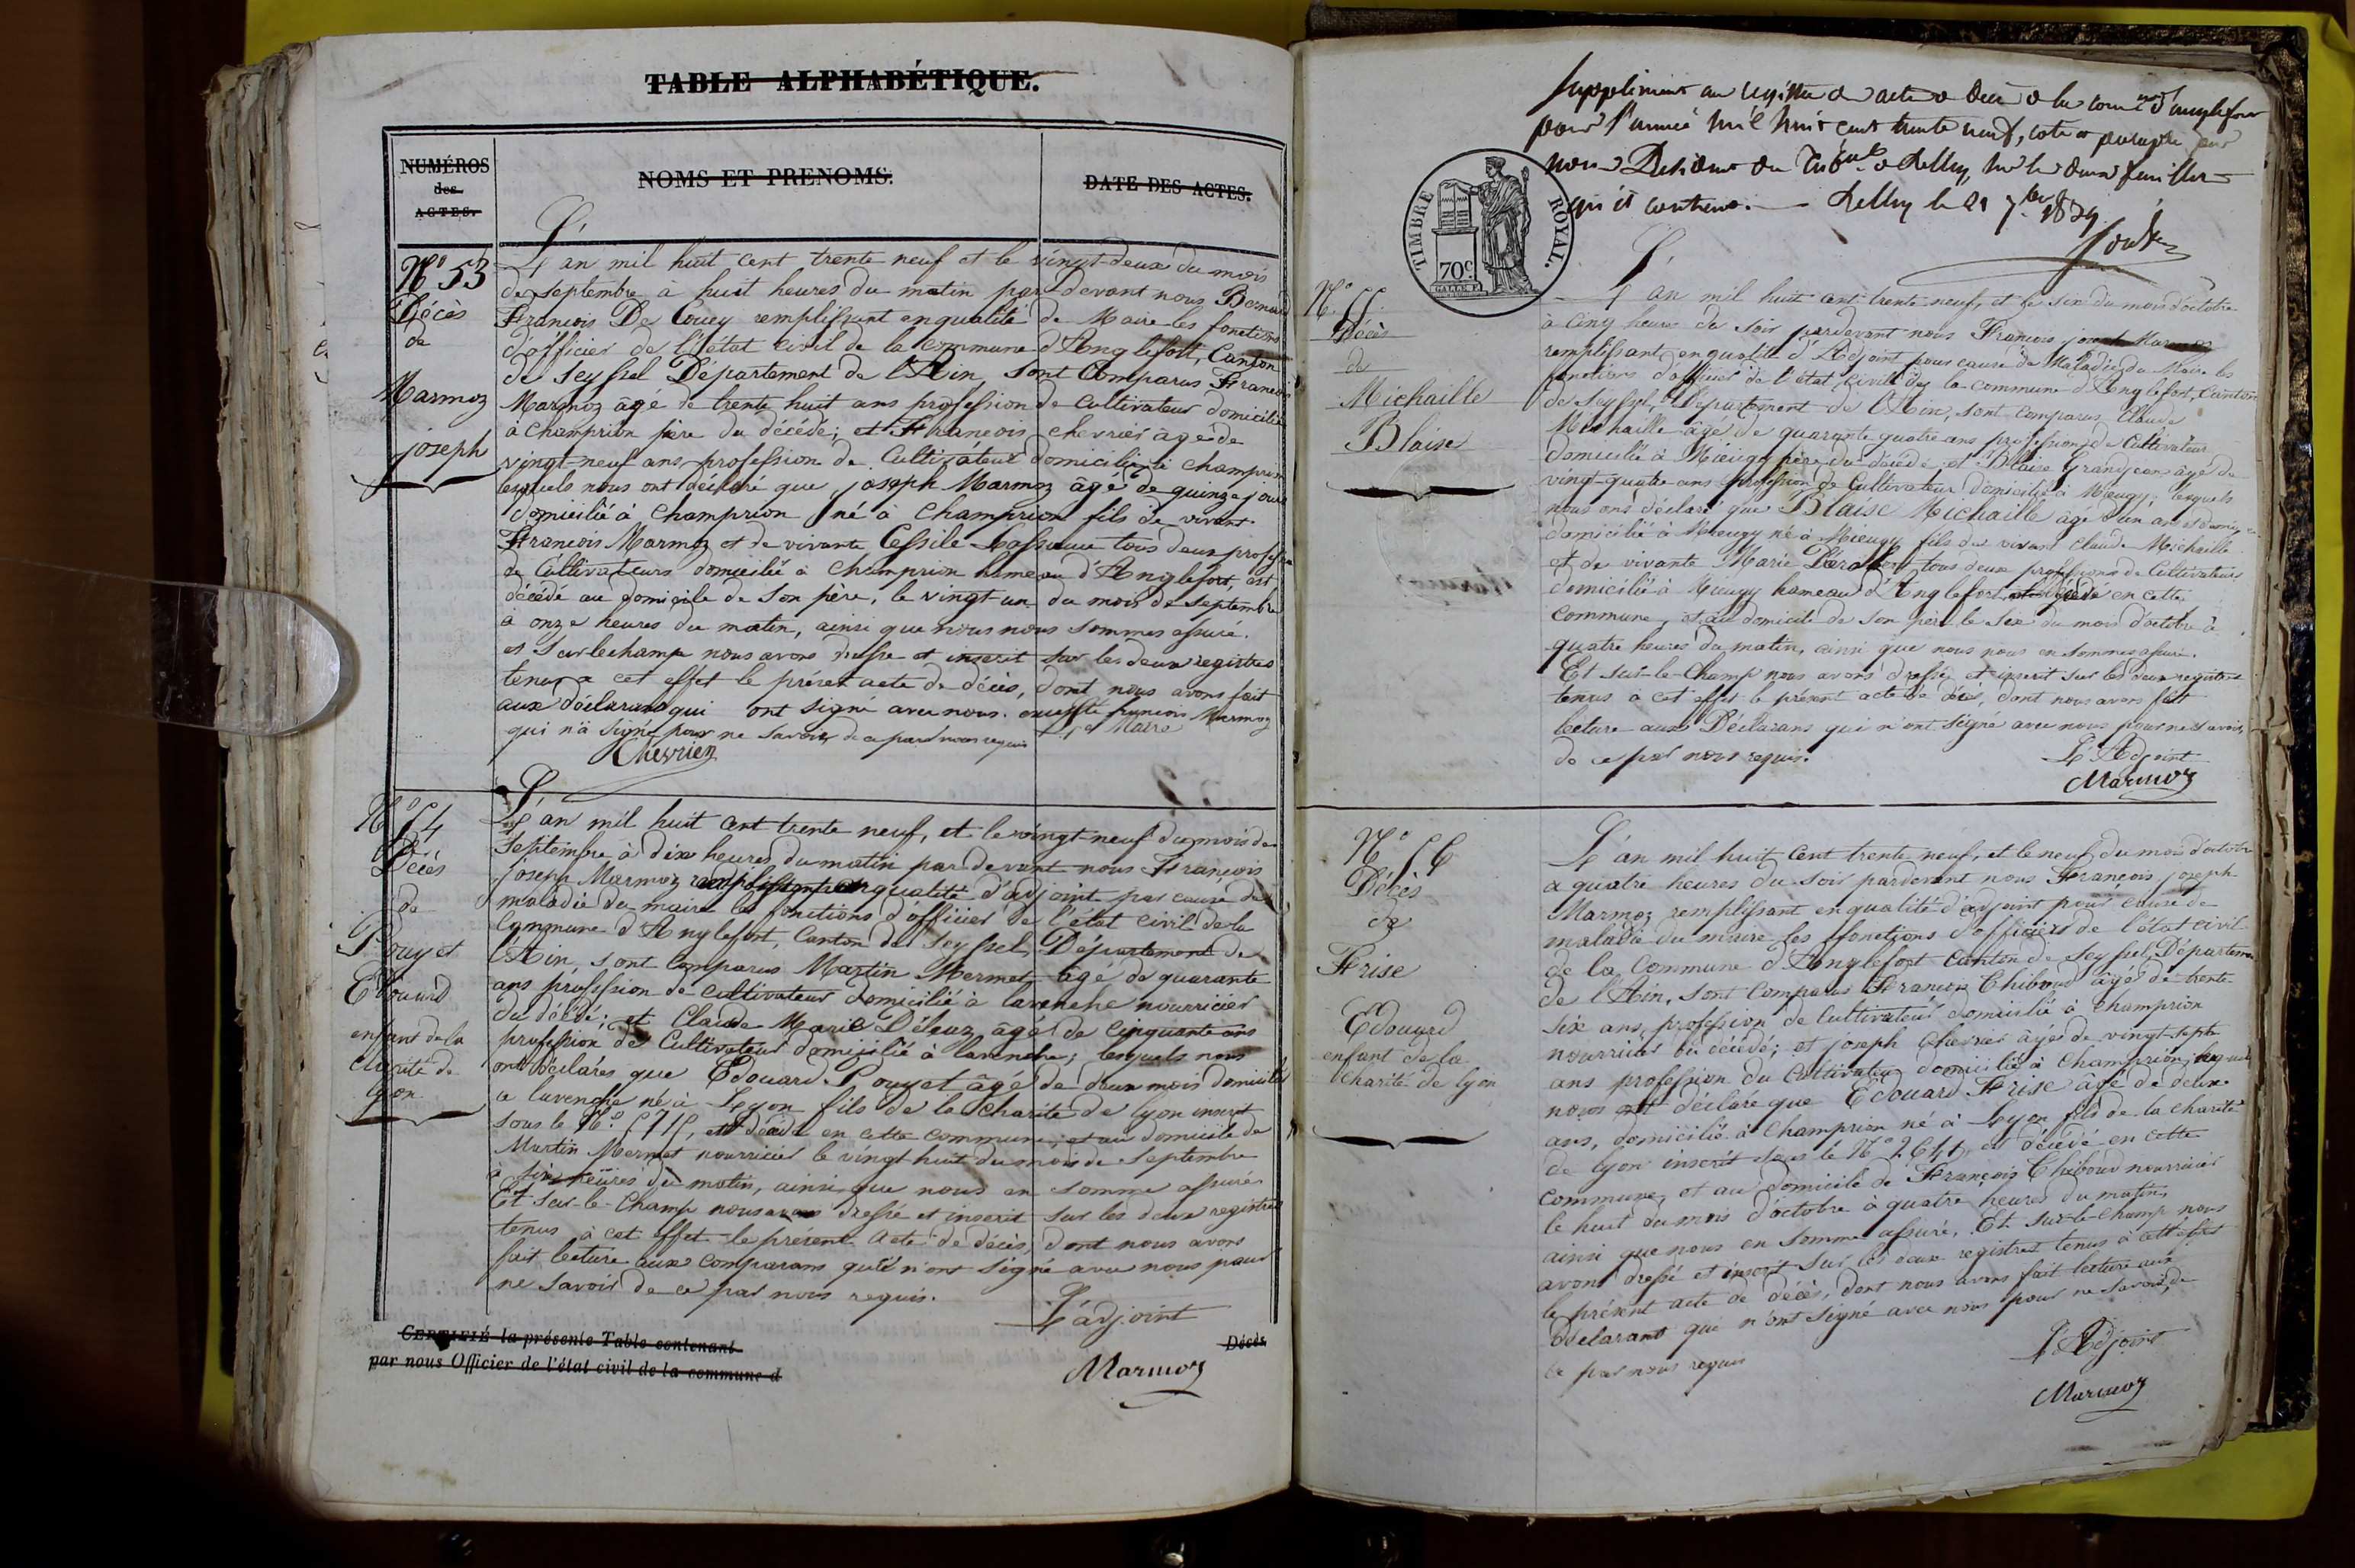 TABLE ALPHABÉTIQUE.
NUMÉROS
des
ACTES.
NOMS ET PRENOMS.
DATE DES ACTES.
N° 53
Décès
de
Marmoz
joseph
L'an mil huit cent trente neuf et le vingt-deux du mois
de septembre à huit heures du matin par devant nous Bernard
François De Coucy remplissant en qualité de Maire les fonctions
d'officier de l'état civil de la commune d'Anglefort, Canton
de Seyssel Département de l'Ain, sont Comparus Francois
Marmoz âgé de trente huit ans profession de cultivateur domicilié
à Champrion père du décédé; et Francois chevrier âgé de
vingt-neuf ans profession de Cultivateur domicilié à champrion
lesquels nous ont déclaré que joseph Marmoz âgé de quinze jours
domicilié à Champrion né à Champrion fils de vivant
Francois Marmoz et de vivante Cessile tous deux profession
de Cultivateurs domicilié à Champrion hameau d'Anglefort, est
décédé au domicile de son père, le vingt-un du mois de septembre
à onze heures du matin, ainsi que nous nous sommes assuré.
et Sur lechamp nous avons dressé et inscrit sur les deux registres
tenus a cet effet le présent acte de décès, dont nous avons fait
aux déclarans qui ont signé avec nous. excepté francois Marmoz
qui n'a signé pour ne savoir de ce par nous requis Le Maire
Chevrier
N° 54
Décès
de
Pouyet
Edouard
enfant de la
charité de
Lyon
L'an mil huit cent trente neuf, et le vingt-neuf du mois de
Septembre à dix heures du matin par devant nous François
joseph Marmoz remplissant en qualité d'adjoint par cause de
maladie du maire les fonctions d'officier de l'état civil de la
Commune d'Anglefort, Canton de Seyssel, Département de
l'Ain, sont comparus Martin Mermet âgé de quarante
ans profession de cultivateur domicilié à lavenche nourricier
du décédé; et Claude Marie Déluz, âgé de cinquante ans
profession de Cultivateur domicilié à lavenche; lesquels nous
ont déclarés que Edouard Pouyet âgé de deux mois domicilié
a lavenche né à Lyon fils de la charité de lyon inscrit
sous le N°. 5715, est décédé en cette commune, et au domicile de
Martin Mermet nourricier le vingt huit du mois de Septembre
à six heures du matin, ainsi que nous en somme assuré
Et Sur-le-Champ nous avons dressé et inscrit sur les deux registres
tenus à cet effet le présent acte de décès, dont nous avons
fait lecture aux comparans qui n'ont signé avec nous pour
ne savoir de ce par nous requis.
L'adjoint
Marmoz
CERTIFIÉ la présente Table contenant
Décès
par nous Officier de l'état civil de la commune d
Supplément au registre des actes de décès de la comne d'anglefort
pour l'année mil huit cent trente neuf, coté et paraphé par
nous Président du Tribunal de Belley, sur les deux feuillets
qu'il contient. Belley le 21 7bre 1839
TIMBRE ROYAL.
70c.
N° 55
Décès
de
Michaille
Blaise
L'an mil huit cent trente neuf, et le six du mois d'octobre
à cinq heures du soir pardevant nous François joseph Marmoz
remplissant en qualité d'Adjoint pour cause de Maladie du Maire les
fonctions d'officier de l'état civil de la commune d'Anglefort, Canton
de Seyssel, Département de l'Ain, sont comparus, Claude
Michaille âgé de quarante quatre ans profession de Cultivateur
domicilié à Mieugy père du décédé et Blaise Grandjean âgé de
vingt-quatre ans profession de Cultivateur domicilié à Mieugy; lesquels
nous ont déclaré que Blaise Michaille âgé d'un ans et demie
domicilié à Mieugy né à Mieugy fils de vivant Claude Michaille
et de vivante Marie tous deux profession de Cultivateurs
domicilié à Mieugy hameau d'Anglefort, est décédé en cette
commune, et au domicile de son père le six du mois d'octobre à
quatre heures du matin, ainsi que nous nous en sommes assuré.
Et sur-le-Champ nous avons dressé et inscrit sur les deux registres
tenus à cet effet le présent acte de décès, dont nous avons fait
lecture aux Déclarans qui n'ont signé avec nous pour ne savoir,
de ce par nous requis.
L'Adjoint
Marmoz
N° 56
Décès
de
Frise
Edouard
enfant de la
charité de lyon
L'an mil huit cent trente neuf, et le neuf du mois d'octobre
a quatre heures du soir pardevant nous François joseph
Marmoz remplissant en qualité d'adjoint pour cause de
maladie du maire les fonctions d'officiers de l'état civil
de la Commune d'Anglefort Canton de Seyssel, Département
de l'Ain, sont Comparus Francois Chiboud âgés de trente-
six ans, profession de Cultivateur domicilié à Champrion
nourricier du décédé; et joseph Chevrier âgés de vingt-sept
ans profession du Cultivateur domicilié à Champrion; lesquels
nous ont déclaré que Edouard Frise âgé de deux
ans, domicilié à Champrion né à Lyon fils de la charité
de lyon inscrit sous le N° est décédé en cette
commune, et au domicile de François Chiboud nourricier
le huit du mois d'octobre à quatre heures du matin,
ainsi que nous en somme assuré. Et sur-le-champ nous
avons dressé et inscrit sur les deux registres tenus à cet effet
le présent acte de décès, dont nous avons fait lecture aux
Déclarans qui n'ont signé avec nous pour ne savoir, de
ce par nous requis
L'Adjoint
Marmoz